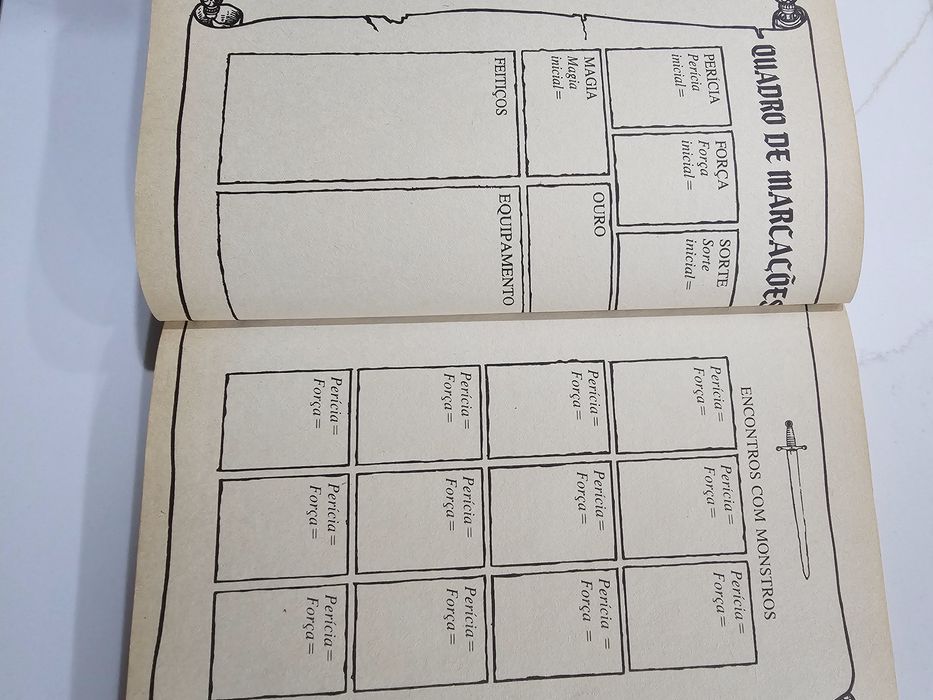 QUADRO DE MARCAÇÕES
PERÍCIA
Perícia
inicial=
FORÇA
Força
inicial=
SORTE
Sorte
inicial=
MAGIA
Magia
inicial=
OURO
FEITIÇOS
EQUIPAMENTO
ENCONTROS COM MONSTROS
Perícia=
Força=
Perícia=
Força=
Perícia=
Força=
Perícia=
Força=
Perícia=
Força=
Perícia =
Força=
Perícia=
Força=
Perícia=
Força=
Perícia=
Força=
Perícia=
Força=
Perícia=
Força=
Perícia=
Força=